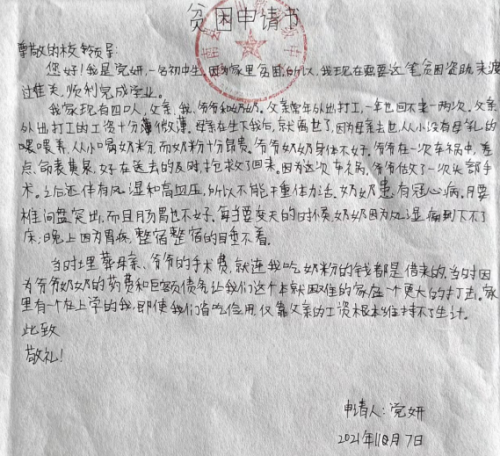 贫困申请书
尊敬的校领导:
您好!我是党妍,一名初中生,因为家里贫困的原因,我现在需要这笔贫困资助,来渡
过难关,顺利完成学业。
我家现有四口人,父亲、我、爷爷和奶奶。父亲常年外出打工,一年也回不来一两次。父亲
外出打工的工资十分薄微薄,母亲在生下我后,就离世了,因为母亲去世,从小没有母乳的
喂喂养,从小喝奶粉,而奶粉十分昂贵。爷爷奶奶身体不好,爷爷在一次车祸中,差
点命丧黄泉,好在送去的及时,抢救了回来。因为这次车祸,爷爷做了一次头部手
术。之后还伴有风湿和高血压,所以不能干重体力活。奶奶患有冠心病,腰
椎间盘突出,而且肠胃也不好,每当变天的时候,奶奶因为风湿痛到下不了
床;晚上因为胃疼,整宿整宿的睡不着。
当时埋葬母亲、爷爷的手术费,就连我吃奶粉的钱都是借来的,当时因
为爷爷奶奶的药费和巨额债务让我们这个本就困难的家庭一个更大的打击。家
里有一个在上学的我,即使我们省吃俭用,仅靠父亲的工资根本维持不了生计。
此致
敬礼!
申请人:党妍
2021年10月7日